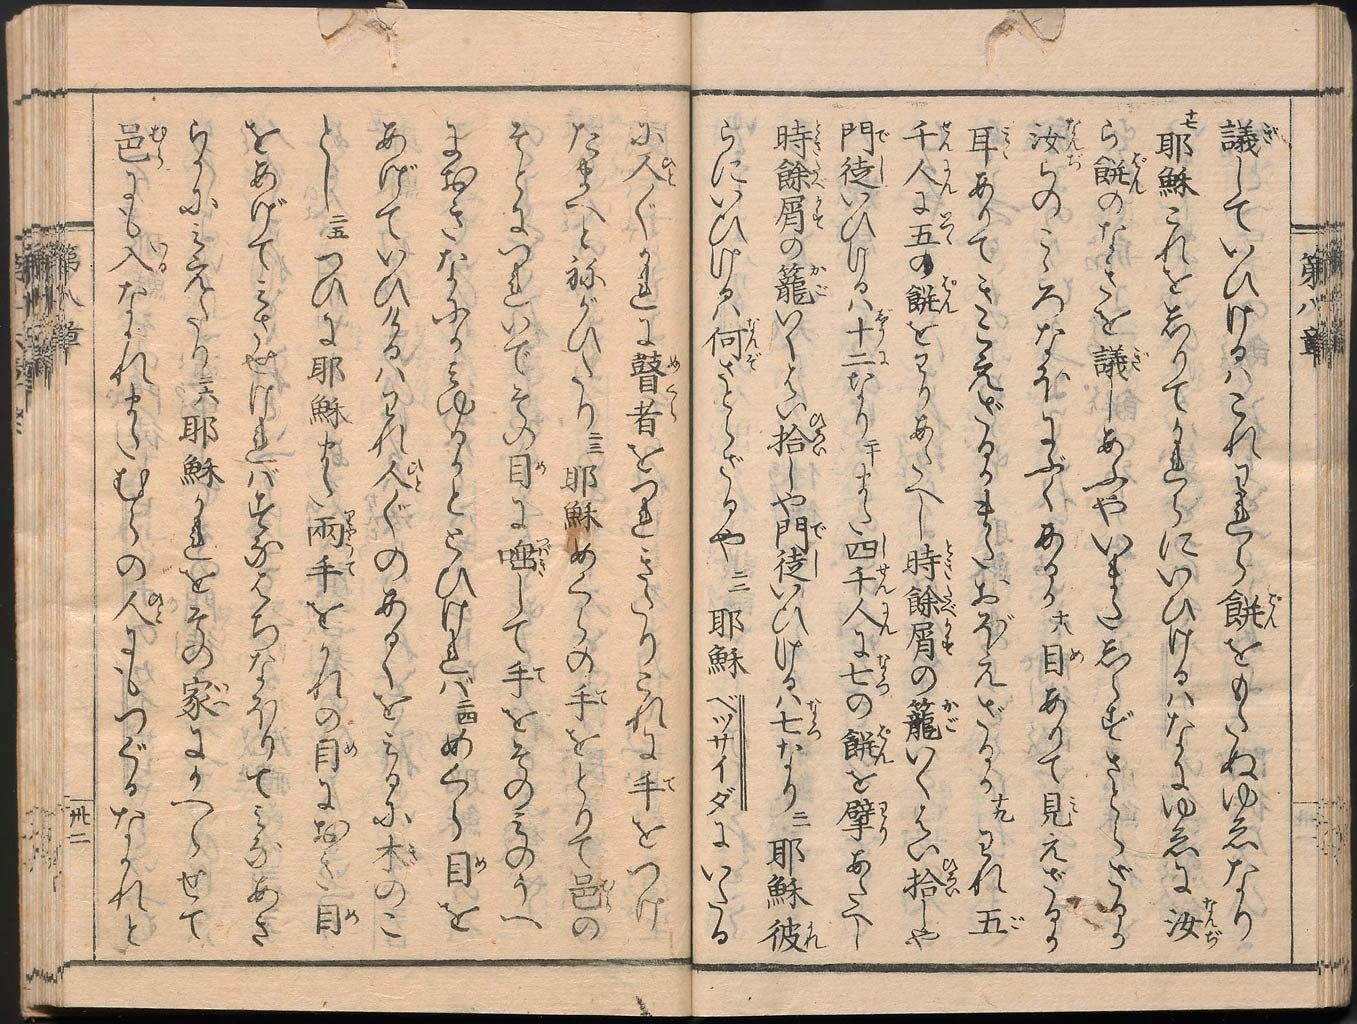 第八章
議していひけるハこれわれら餅をもたぬゆゑなり
十七耶穌これをしりてかれらにいひけるハなにゆゑに汝
ら餅のなきを議しあふやいまだしらずさとらざるか
汝らのこゝろなほにぶくあるか十八目ありて見えざるか
耳ありてきこえざるかまたおぼえざるか十九われ五
千人に五の餅をわりあたへし時餘屑の籠いくはい拾しや
門徒いひけるハ十二なり二十また四千人に七の餅を擘あたへし
時餘屑の籠いくはい拾しや門徒いひけるハ七なり二一耶穌彼
らにいひけるハ何ぞさとらざるや二二耶穌ベッサイダにいたる
に人〴〵かれに瞽者をつれきたりこれに手をつけ
たまへとねがひたり二三耶穌めくらの手をとりて邑の
そとにつれいでその目に唾して手をその身のうへ
におきなにかみゆるかととひければ二四めくら目を
あげていひけるハわれ人〴〵のあるくをみるに木のこ
とし二五つひに耶穌また兩手をかれの目におき目
をあげてみさせければすなはちなほりてみなあき
らかにみえたり二六耶穌かれをその家にかへらせて
邑にも入なかれまたむらの人にもつぐるなかれと
第八章
卅二